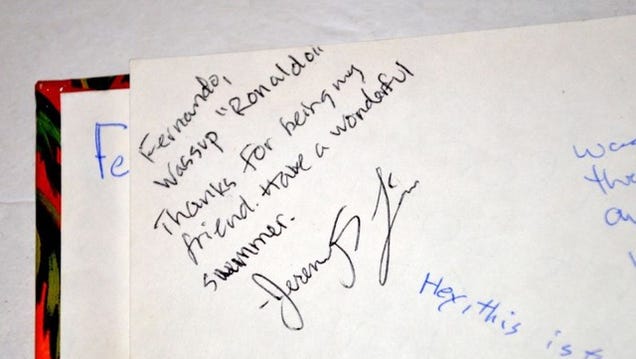 Fernando,
Wassup "Ronaldo"
Thanks for being my
friend. Have a wonderful
summer.
-Jeremy
Fe
Hey, this is